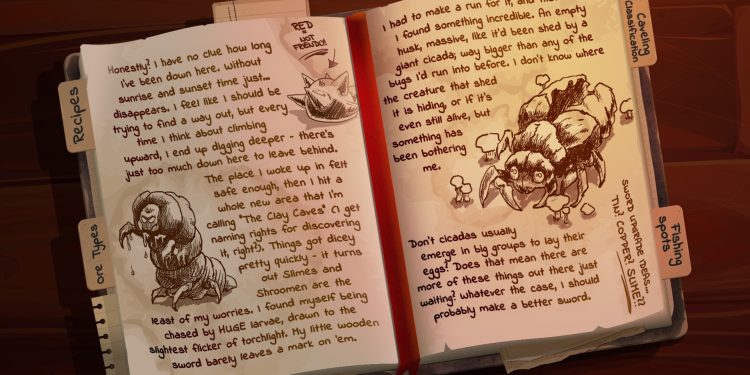 RED
=
NOT
FRIENDO!
Honestly? I have no clue how long
i've been down here. Without
sunrise and sunset time just...
disappears. I feel like I should be
trying to find a way out, but every
time I think about climbing
upward, I end up digging deeper - there's
just too much down here to leave behind.
The place I woke up in felt
safe enough, then I hit a
whole new area that i'm
calling "The Clay Caves" (I get
naming rights for discovering
it, right?). Things got dicey
pretty quickly - it turns
out Slimes and
Shroomen are the
least of my worries. I found myself being
chased by HUGE larvae, drawn to the
slightest flicker of torchlight. My little wooden
sword barely leaves a mark on 'em.
Recipes
Ore Types
I had to make a run for it, and
I found something incredible. An empty
husk, massive, like it'd been shed by a
giant cicada; way bigger than any of the
bugs i'd run into before. I don't know where
the creature that shed
it is hiding, or if it's
even still alive, but
something has
been bothering
me.
Don't cicadas usually
emerge in big groups to lay their
eggs? Does that mean there are
more of these things out there just
waiting? Whatever the case, I should
probably make a better sword.
SWORD UPGRADE IDEAS...
TIN? COPPER? SLIME??
Caveling
Classification
Fishing
spots